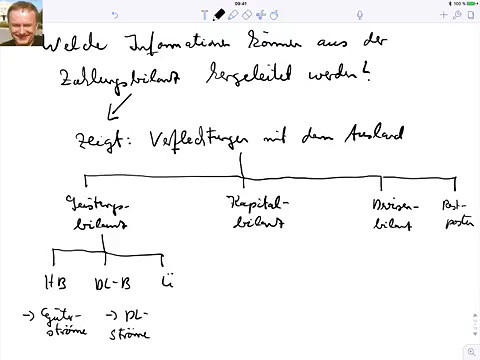 09:41
100 %
Welche Informationen können aus der
Zahlungsbilanz hergeleitet werden?
zeigt: Verflechtungen mit dem Ausland
Leistungs-
bilanz
Kapital-
bilanz
Devisen-
bilanz
Rest-
posten
HB DL-B Ü
→ Güter-
ströme
→ DL-
ströme